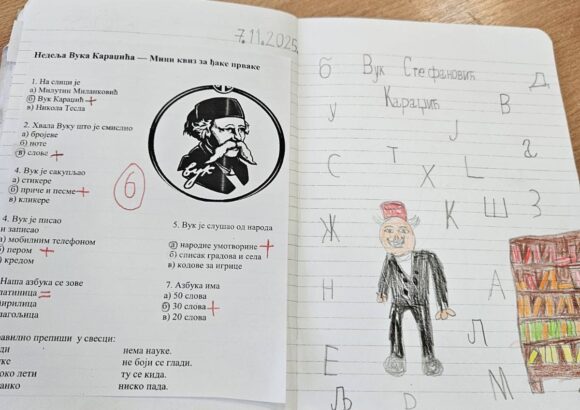 7.11.2025.
Недеља Вука Караџића — Мини квиз за ђаке прваке
1. На слици је
а) Милутин Миланковић
б) Вук Караџић +
в) Никола Тесла
2. Хвала Вуку што је смислио
а) бројеве
б) ноте
в) слове +
4. Вук је сакупљао
а) стикере
б) приче и песме +
в) кликере
4. Вук је писао
и записао
а) мобилним телефоном
б) пером +
в) кредом
Наша азбука се зове
латиница =
ћирилица
глагољица
вук
6
5. Вук је слушао од народа
а) народне умотворине +
б) списак градова и села
в) кодове за игрице
7. Азбука има
а) 50 слова
б) 30 слова +
в) 20 слова
равилно препиши у свесци:
ди нема науке.
уке не боји се глади.
око лети ту се кида.
анко ниско пада.
б Вук Стефановић Д
у Караџић В
Ј
С Т Х Ц г
Ж К Ш З
Н А
Л
Е М
Љ